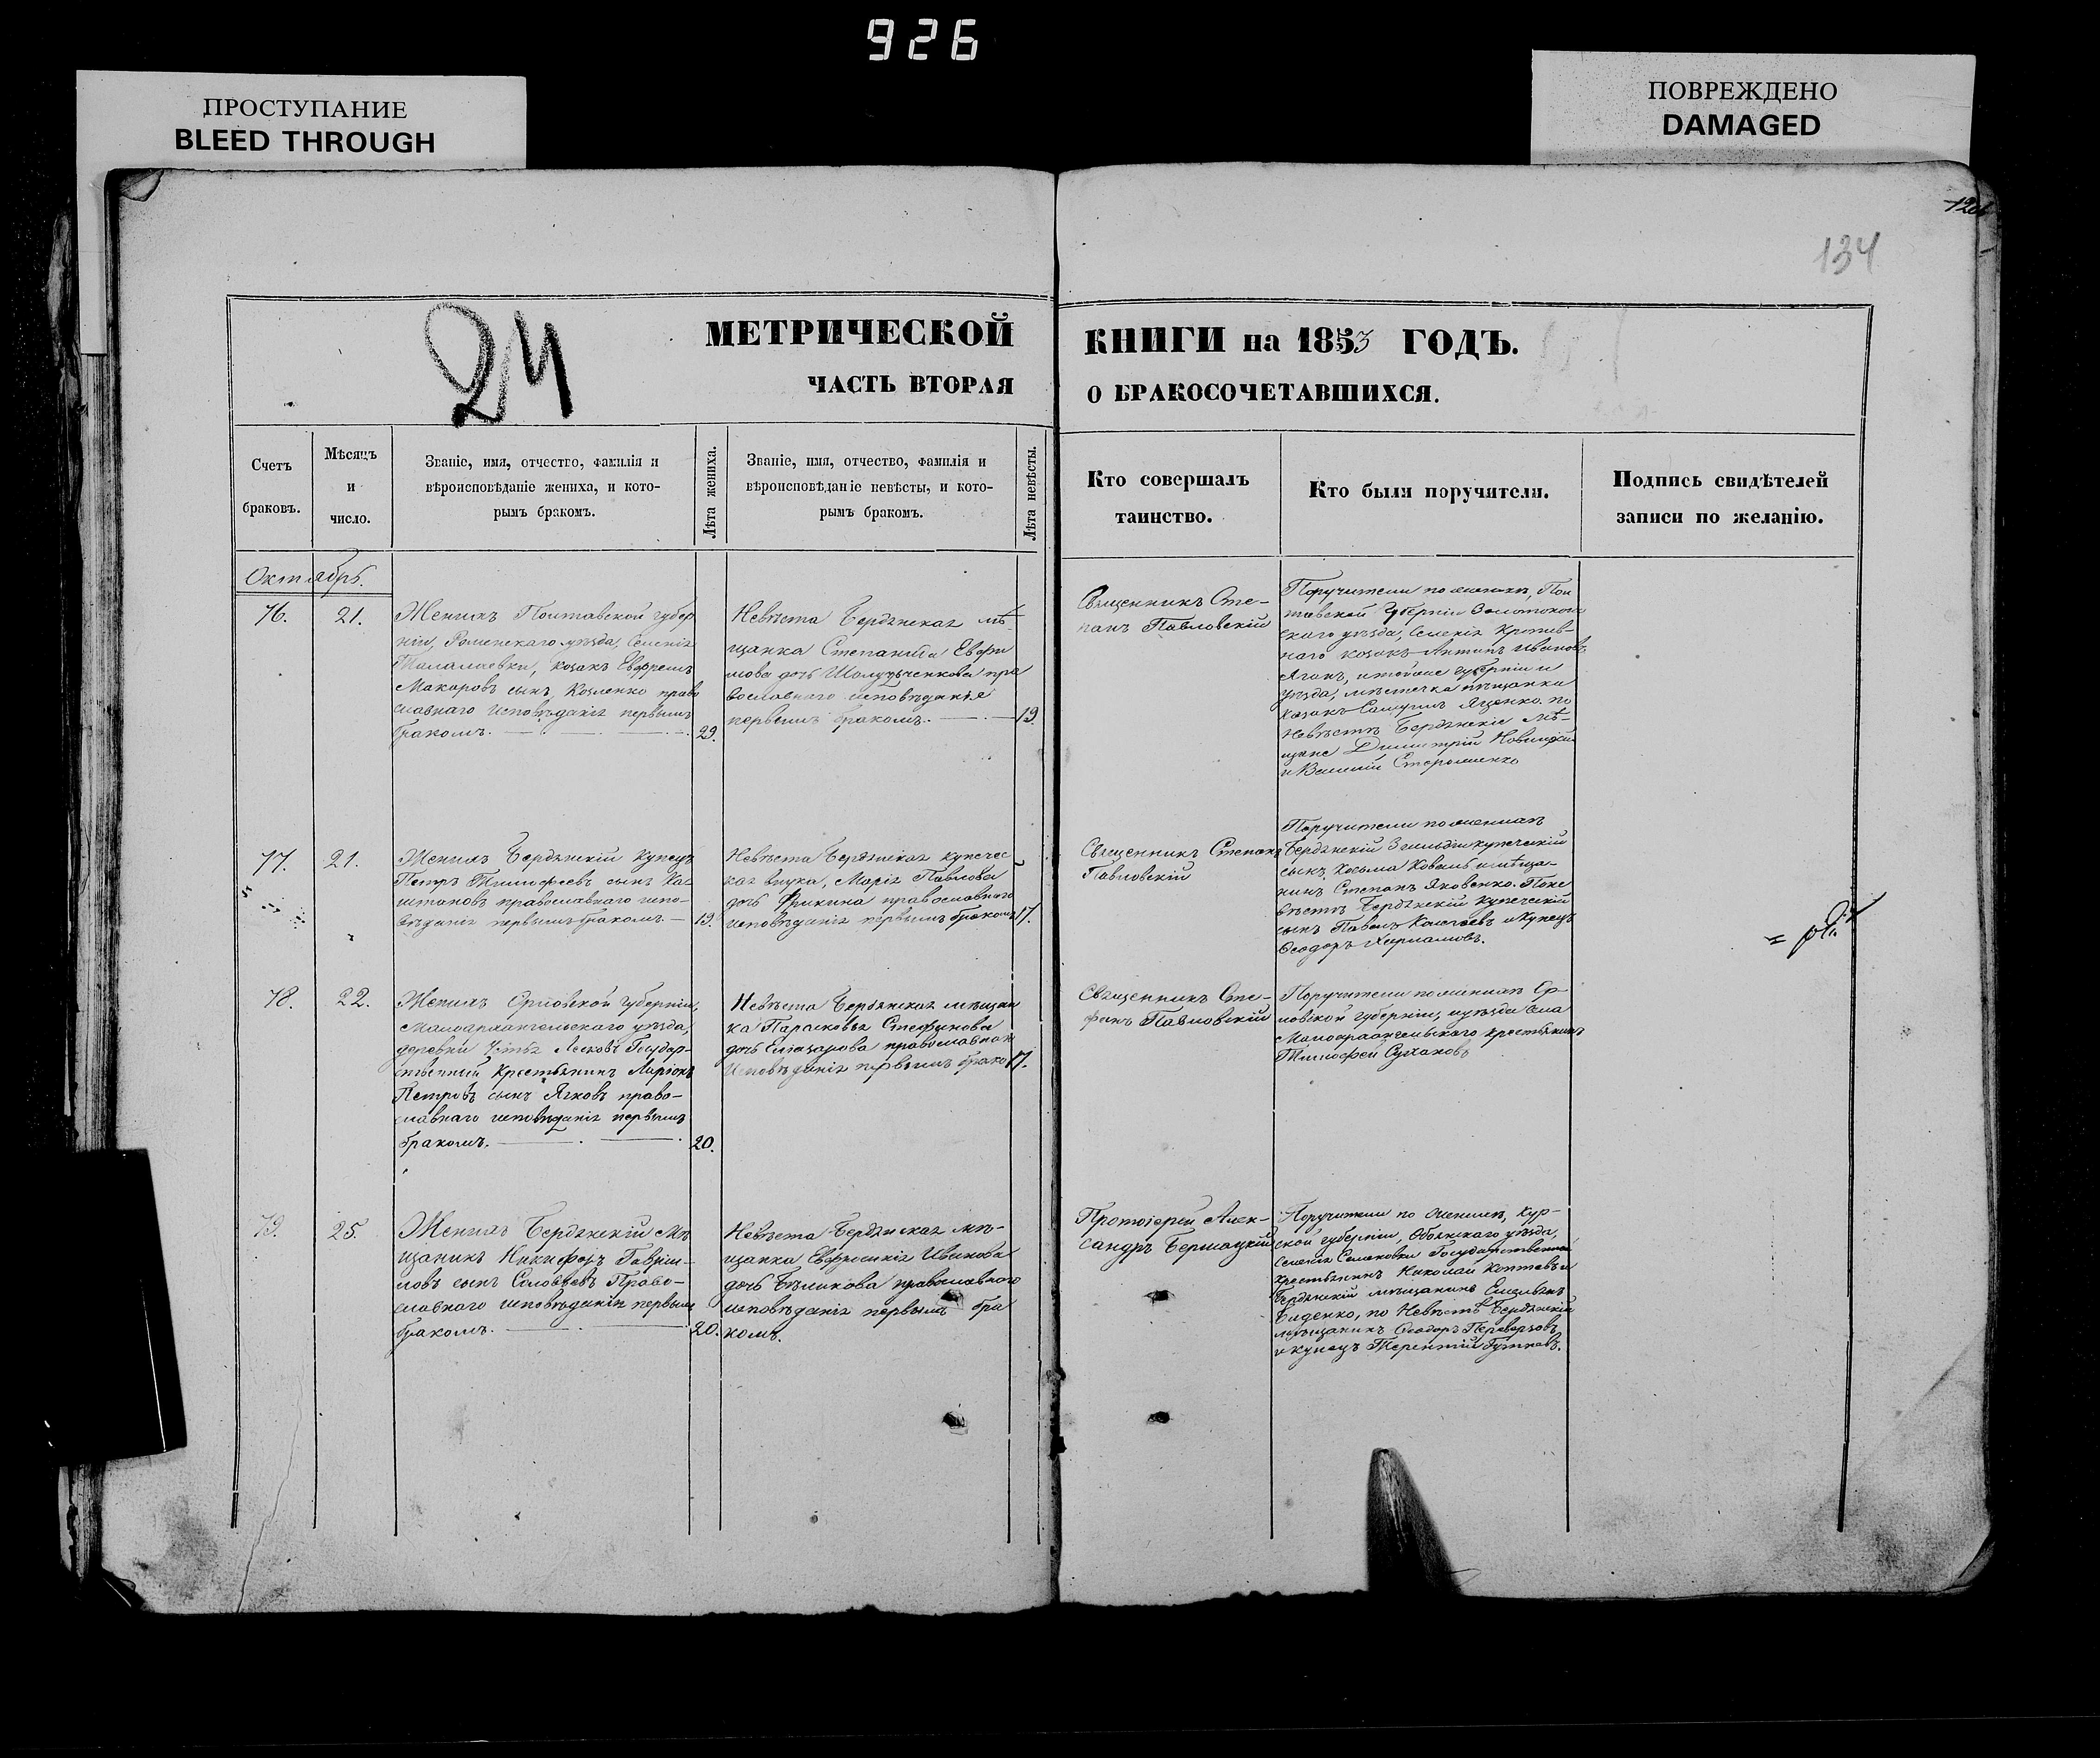 926
ПРОСТУПАНИЕ
BLEED THROUGH
ПОВРЕЖДЕНО
DAMAGED
134
24
МЕТРИЧЕСКОЙ КНИГИ на 1853 ГОДЪ.
ЧАСТЬ ВТОРАЯ О БРАКОСОЧЕТАВШИХСЯ.
Счетъ
браковъ.
Мѣсяцъ
и
число.
Званіе, имя, отчество, фамилія и
вѣроисповѣданіе жениха, и кото-
рымъ бракомъ.
Лѣта жениха.
Званіе, имя, отчество, фамилія и
вѣроисповѣданіе невѣсты, и кото-
рымъ бракомъ.
Лѣта невѣсты.
Кто совершалъ
таинство.
Кто были поручители.
Подпись свидѣтелей
записи по желанію.
Октябрь.
76.
21.
Женихъ Полтавской губер
ніи, Роменскаго уѣзда, Селенія
Талалаевки, козакъ Евфремъ
Макаровъ сынъ Козленко право
славнаго исповѣданія первымъ
бракомъ.
29.
Невѣста Бердянская мѣ
щанка Степанида Евфи
мова дочь пра
вославнаго исповѣданія
первымъ бракомъ.
19.
Священникъ Сте-
панъ Павловскій
Поручители по женихѣ, Пол
тавской Губерніи Золотонош
скаго уѣзда, Селенія Кропив-
наго козакъ Антипъ Ивановъ
губерніи и
уѣзда, мѣстечка
козакъ Яценко. по
Невѣстѣ Бердянскіе мѣ-
щане Димитрій
и Василій
77.
21.
Женихъ Бердянскій Купецъ
Петръ Тимофеевъ сынъ Ка
православнаго испо-
вѣданія первымъ бракомъ.
19.
Невѣста Бердянская купечес
кая внука, Марія Павлова
дочь православнаго
исповѣданія первымъ бракомъ
17.
Священникъ Степанъ
Павловскій
Поручители по женихѣ
Бердянскій купеческій
сынъ Козьма и мѣща-
нинъ Степанъ Яковенко. По не
вѣстѣ Бердянскій купеческій
сынъ Павелъ и Купецъ
Ѳеодоръ
78.
22.
Женихъ Орловской губерніи,
Малоархангельскаго уѣзда,
деревни Государ-
ственный Крестьянинъ Ларіонъ
Петровъ сынъ право-
славнаго исповѣданія первымъ
бракомъ.
20.
Невѣста Бердянская мѣщан
ка Парасковья Стефанова
дочь Елизарова православнаго
исповѣданія первымъ брако
17.
Священникъ Сте-
фанъ Павловскій
Поручители по женихѣ Ор-
ловской губерніи, уѣзда
Малоархангельскаго крестьянинъ
Тимофей Сухановъ
79.
25.
Женихъ Бердянскій Мѣ
щанинъ Никифоръ Гаврии-
ловъ сынъ Право-
славнаго исповѣданія первымъ
бракомъ.
20.
Невѣста Бердянская мѣ-
щанка Евфросинія Иванова
дочь Бѣликова православнаго
исповѣданія первымъ бра
комъ.
Протоіерей Алек-
сандръ
Поручители по женихѣ, Кур-
ской губерніи, Обоянскаго уѣзда,
Селенія Семеновки Государственный
крестьянинъ Николай и
Бердянскій мѣщанинъ Емельянъ
Биденко, по Невѣстѣ Бердянскій
мѣщанинъ Ѳеодоръ
и купецъ Терентій